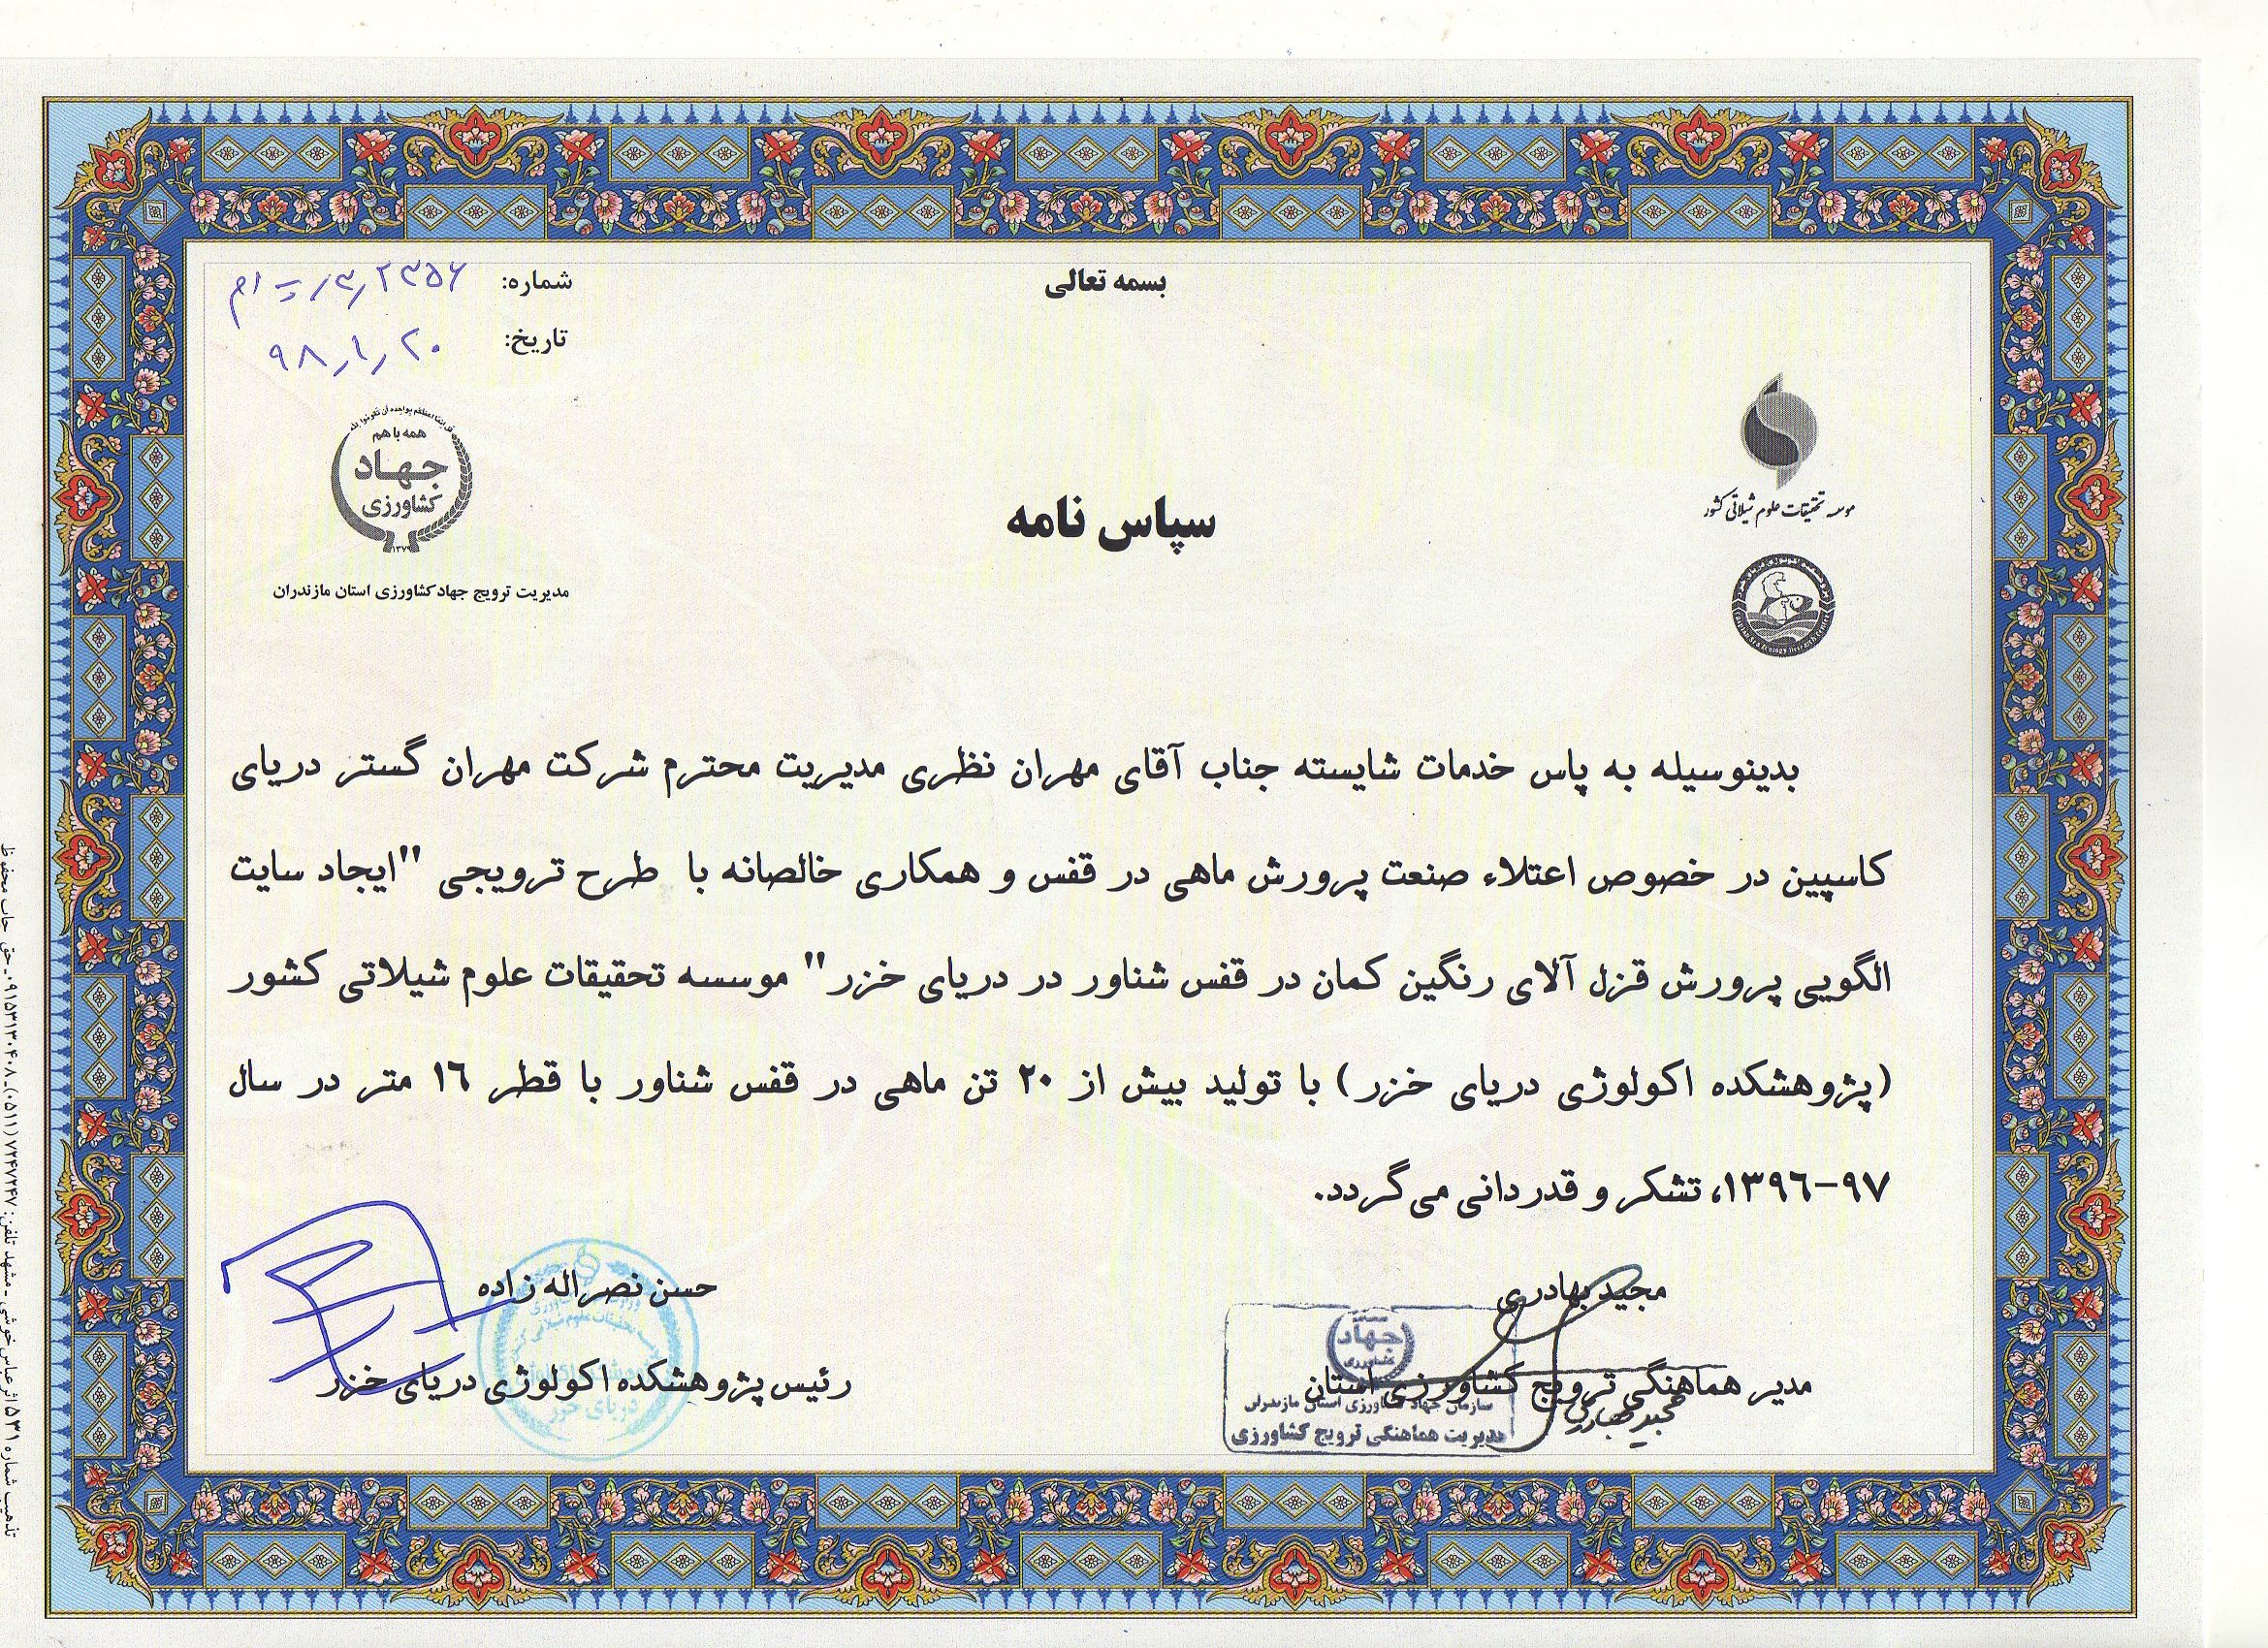 بسمه تعالی
شماره:
تاریخ: ۹۸/۱/۲۰
همه با هم
جهاد
کشاورزی
۱۳۷۹
مدیریت ترویج جهاد کشاورزی استان مازندران
موسسه تحقیقات علوم شیلاتی کشور
سپاس نامه
بدینوسیله به پاس خدمات شایسته جناب آقای مهران نظری مدیریت محترم شرکت مهران گستر دریای
کاسپین در خصوص اعتلاء صنعت پرورش ماهی در قفس و همکاری خالصانه با طرح ترویجی "ایجاد سایت
الگویی پرورش قزل آلای رنگین کمان در قفس شناور در دریای خزر" موسسه تحقیقات علوم شیلاتی کشور
(پژوهشکده اکولوژی دریای خزر) با تولید بیش از ۲۰ تن ماهی در قفس شناور با قطر ۱۶ متر در سال
۱۳۹۶-۹۷، تشکر و قدردانی می‌گردد.
مجید بهادری
مدیر هماهنگی ترویج کشاورزی استان
جهاد
کشاورزی
سازمان جهاد کشاورزی استان مازندران
مدیریت هماهنگی ترویج کشاورزی
مجید بهادری
حسن نصراله زاده
رئیس پژوهشکده اکولوژی دریای خزر
دریای خزر
تذهیب شماره ۵۳۱ اثر عباس خوشی - مشهد تلفن: ۷۲۴۷۲۴۷ (۰۵۱۱) - ۰۹۱۵۳۱۳۰۴۰۸ - حق چاپ محفوظ